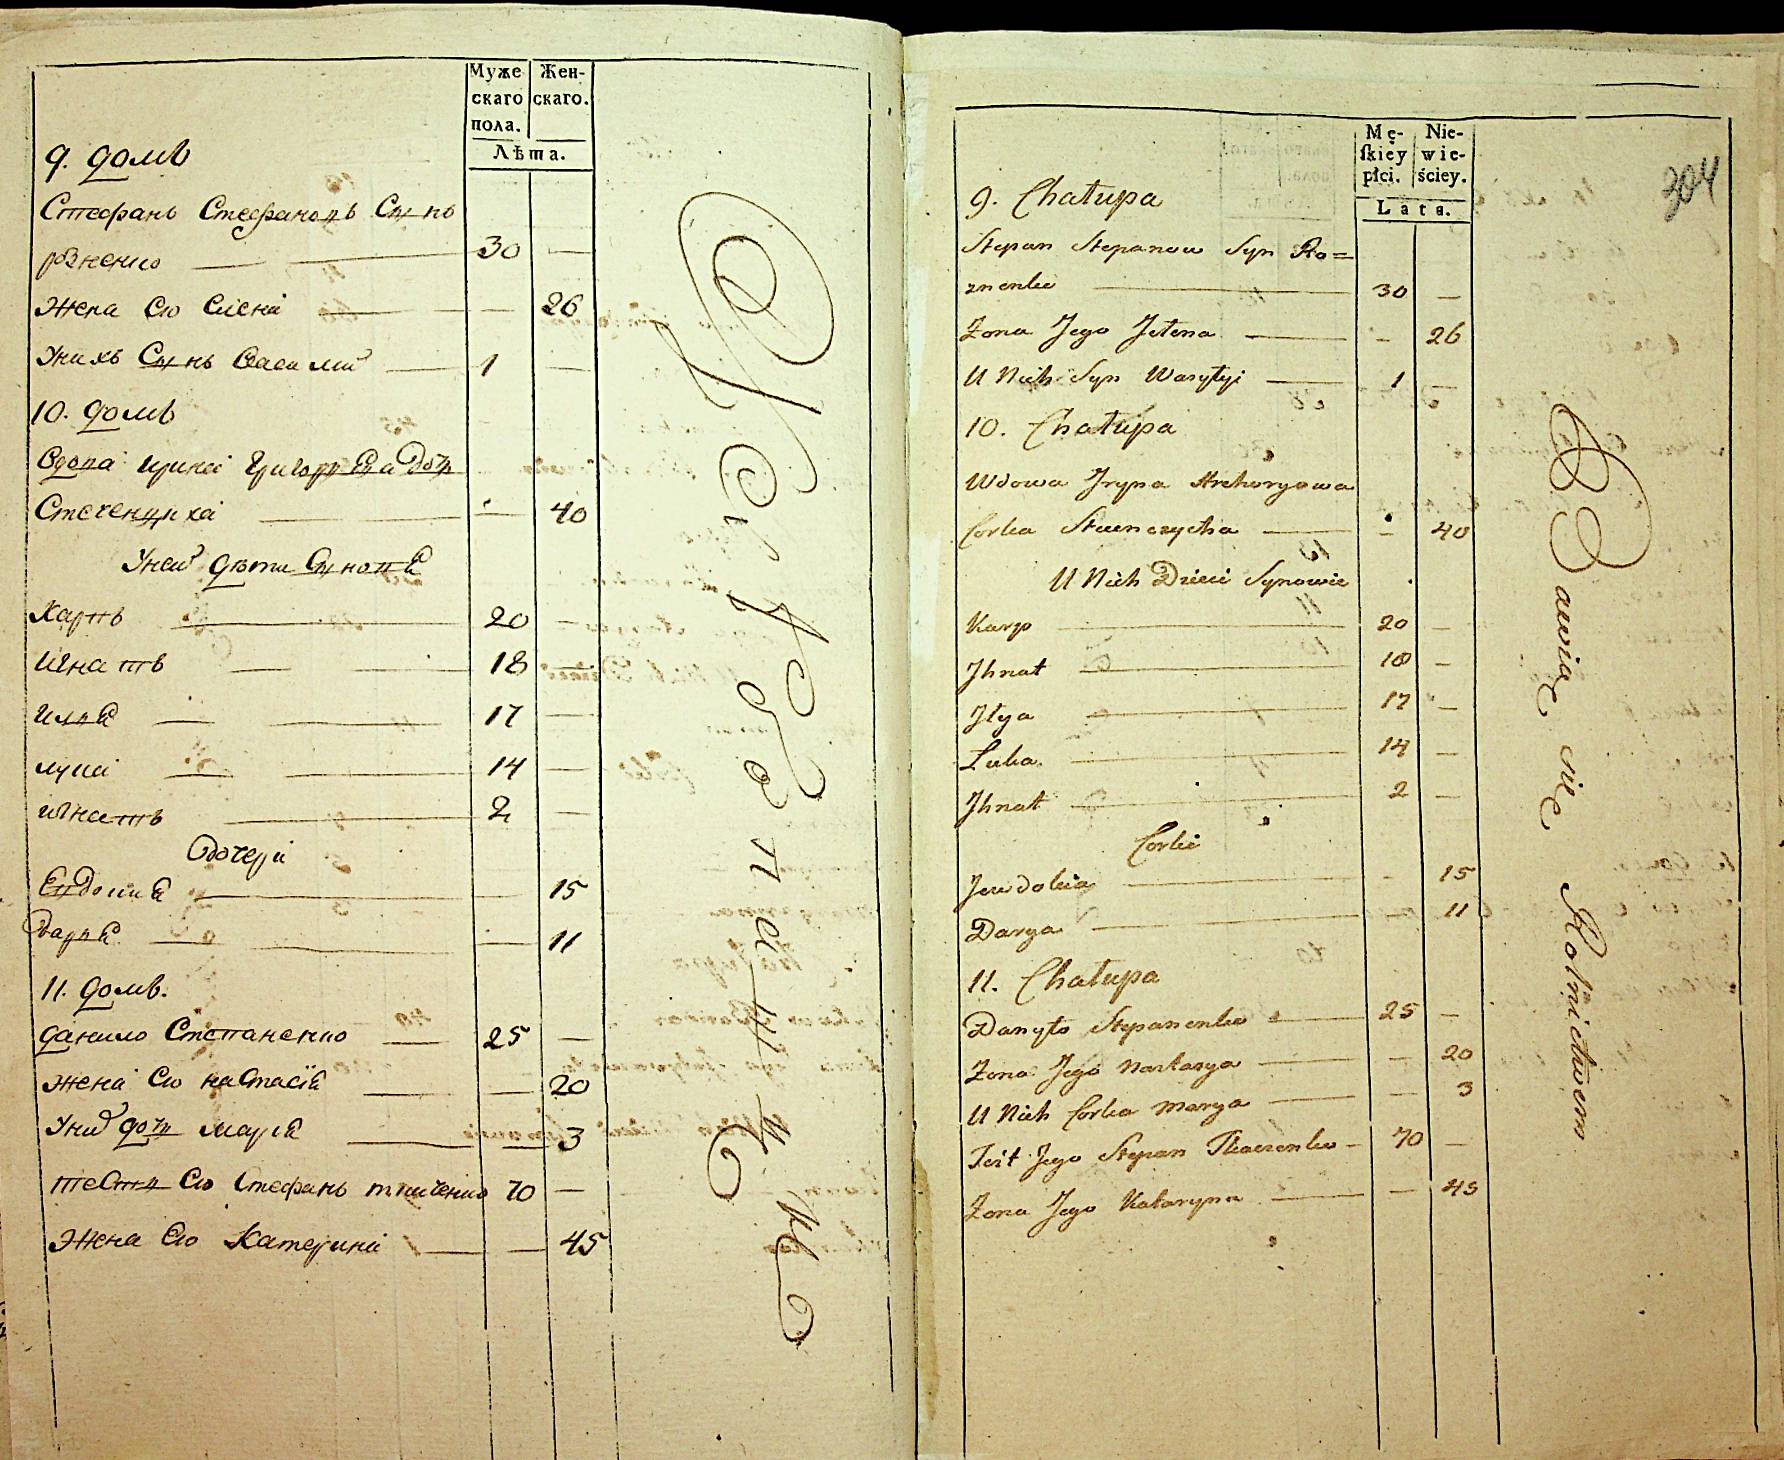 Муже
скаго
пола.
Жен-
скаго.
Лѣта.
9. домъ
Стефанъ Стефановъ Сынъ
розненко 30 —
жена его Елена — 26
Унихъ Сынъ Васили 1 —
10. домъ
Вдова ирина Григорьева дочь
Стеченчиха — 40
Уней дѣти Сыновя
Карпъ 20 —
Игнатъ 18 —
Илья 17 —
лука 14 —
игнатъ 2 —
дочери
Евдокия 15
Дарья — 11
11. домъ.
данило Степаненко 25 —
жена его настасїя — 20
Уних дочь мария — 3
тесть его Стефанъ ткаченко 70 —
Жена его Катерина — 45
304
Mę-
skiey
płci.
Nie-
wie-
ściey.
Lata.
9. Chałupa
Stepan Stepanow Syn Ro=
znenko 30 —
Żona Jego Jełena — 26
U Nich Syn Wasyłyi 1 —
10. Chałupa
Wdowa Jryna Hrehoryowa
Corka Steenczycha — 40
U Nich Dzieci Synowie
Karp 20 —
Jhnat 18 —
Jłya 17 —
Łuka 14 —
Jhnat 2 —
Corki
Jewdokia — 15
Darya 11
11. Chałupa
Danyło Stepanenko 25 —
Żona Jego Nastasya — 20
U Nich Corka Marya — 3
Teść Jego Stepan Tkaczenko — 70 —
Żona Jego Kataryna — 45
Bawią się Rolnictwem